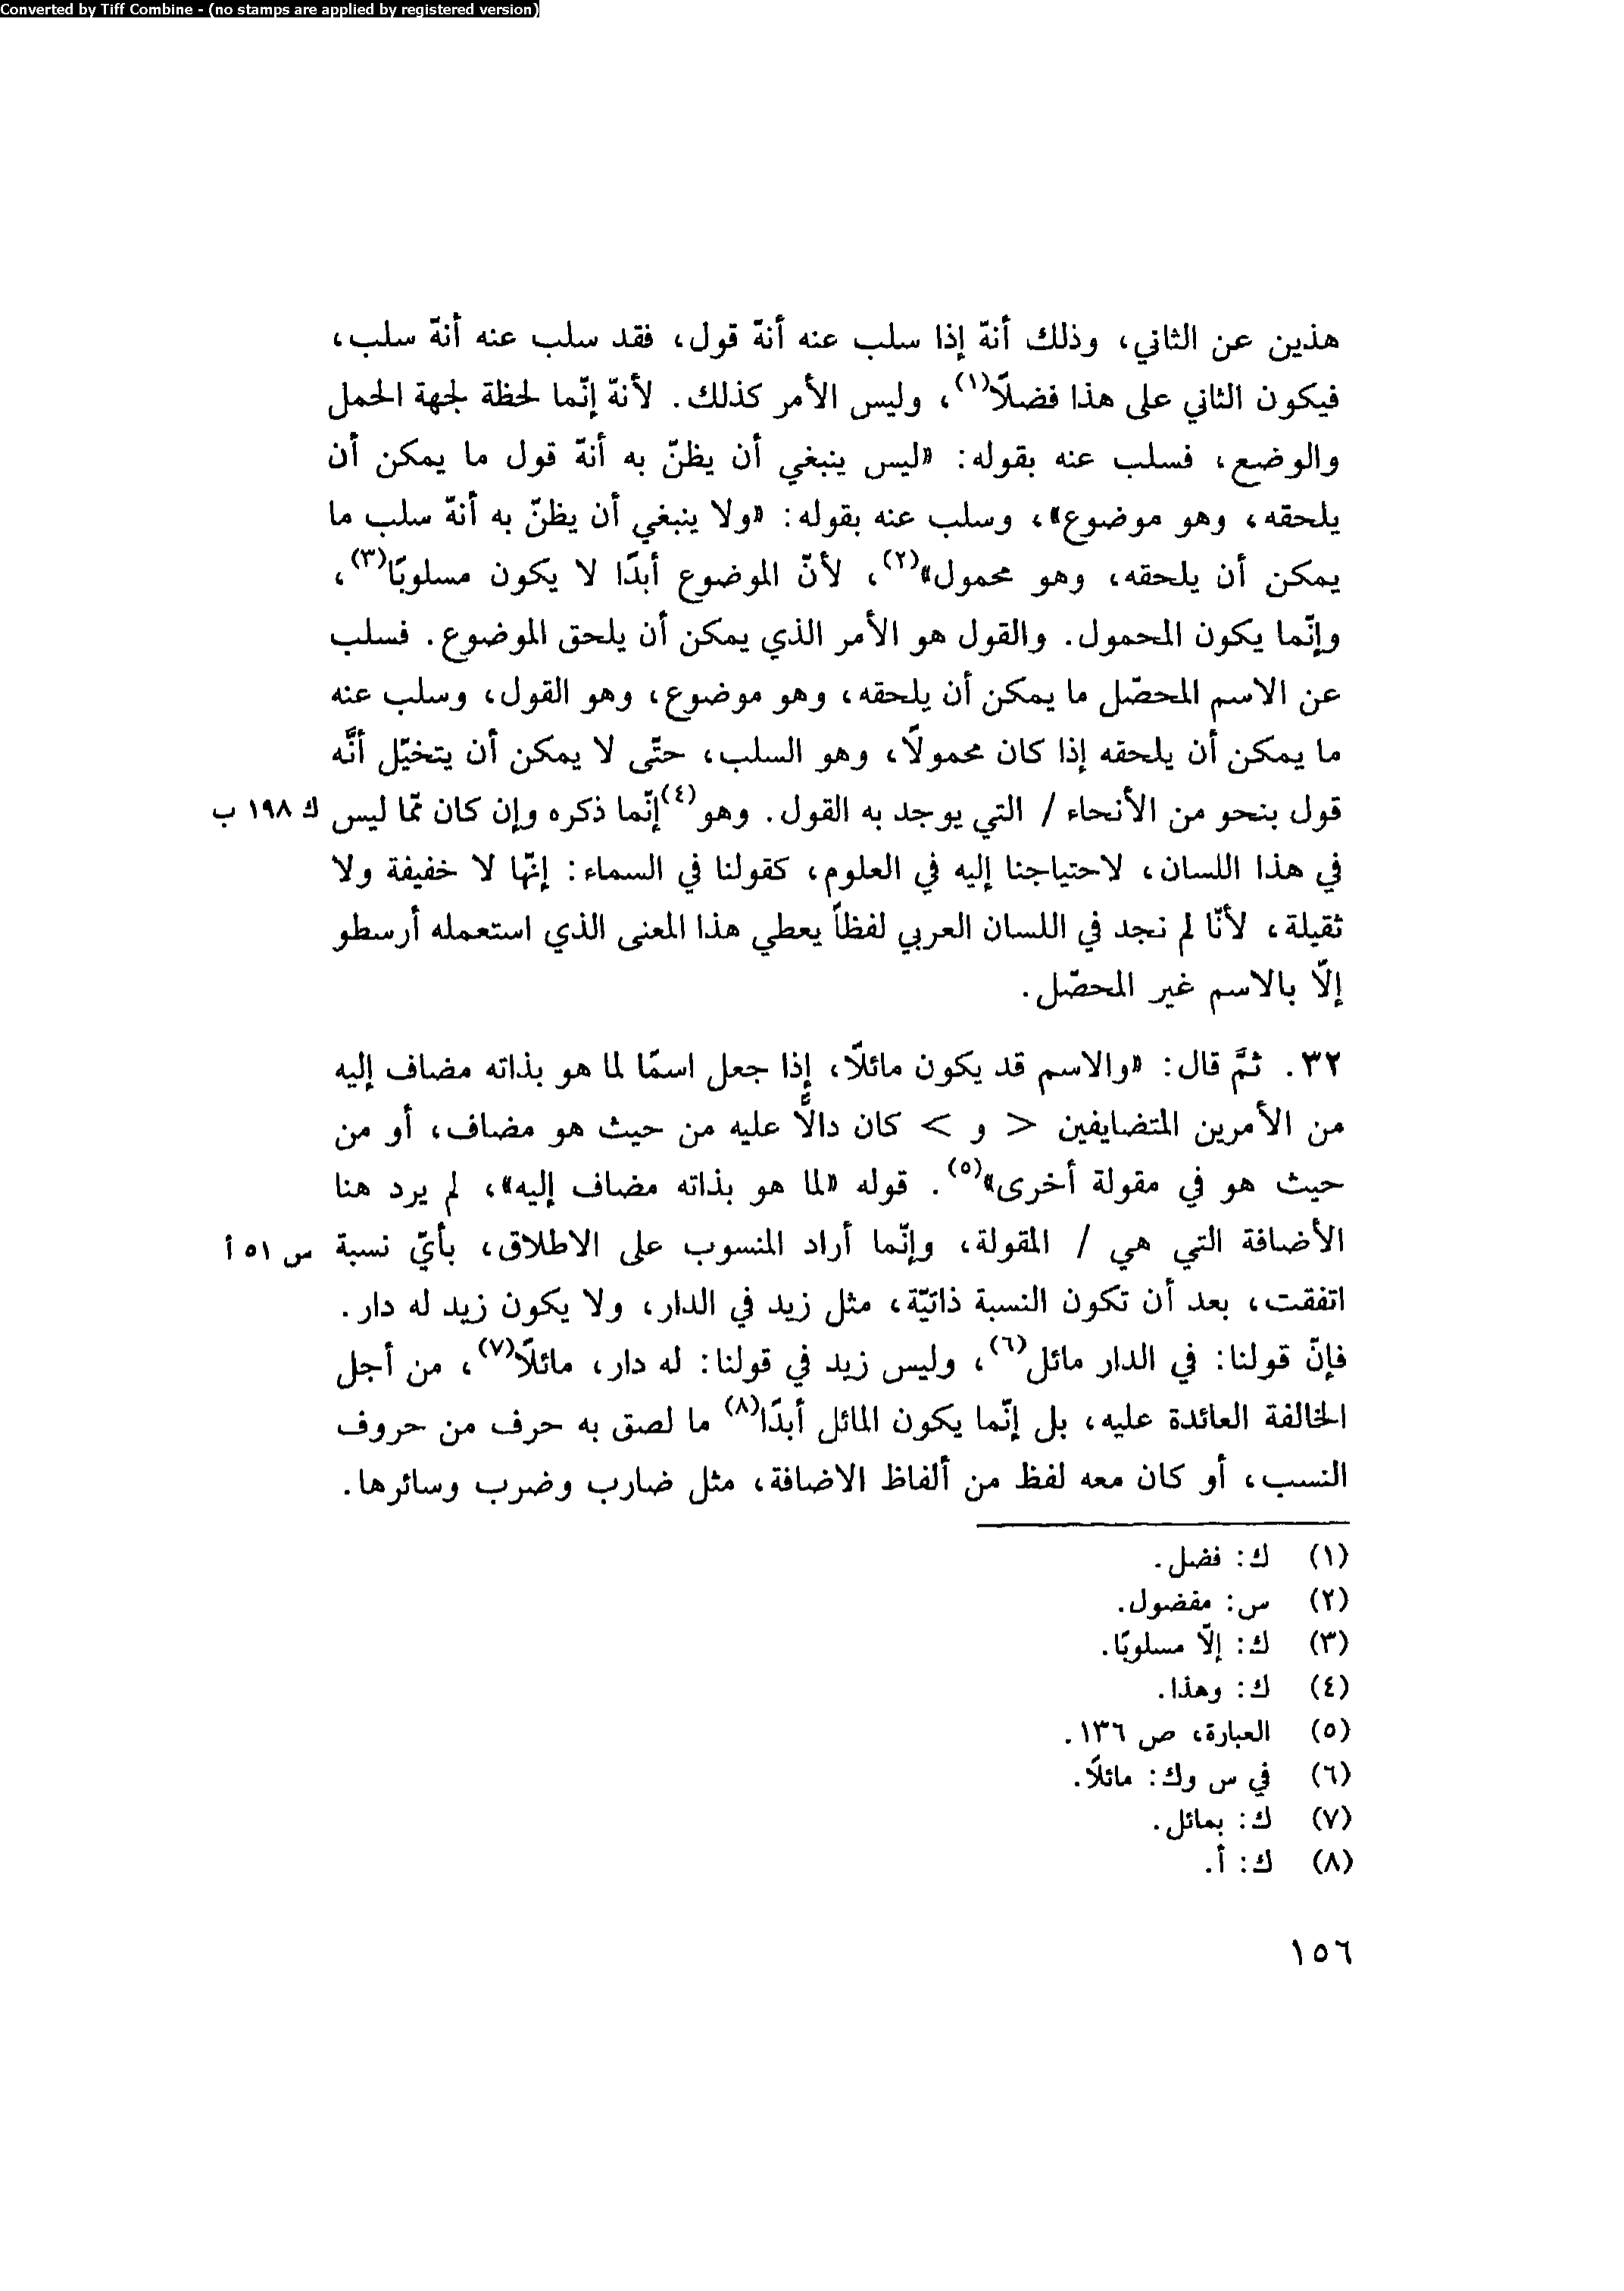 Converted by Tiff Combine - (no stamps are applied by registered version)
هذين عن الثاني، وذلك أنهّ إذا سلب عنه أنهّ قول، فقد سلب عنه أنهّ سلب،
فيكون الثاني على هذا فضلاً(١)، وليس الأمر كذلك. لأنهّ إنّما لحظة لجهة الحمل
والوضع، فسلب عنه بقوله: «ليس ينبغي أن يظنّ به أنهّ قول ما يمكن أن
يلحقه، وهو موضوع»، وسلب عنه بقوله: «ولا ينبغي أن يظنّ به أنهّ سلب ما
يمكن أن يلحقه، وهو محمول»(٢)، لأنّ الموضوع أبدًا لا يكون مسلوبًا(٣)،
وإنّما يكون المحمول. والقول هو الأمر الذي يمكن أن يلحق الموضوع. فسلب
عن الاسم المحصّل ما يمكن أن يلحقه، وهو موضوع، وهو القول، وسلب عنه
ما يمكن أن يلحقه إذا كان محمولاً، وهو السلب، حتّى لا يمكن أن يتخيّل أنَّه
قول بنحو من الأنحاء / التي يوجد به القول. وهو(٤) إنّما ذكره وإن كان ممّا ليس ك ١٩٨ ب
في هذا اللسان، لاحتياجنا إليه في العلوم، كقولنا في السماء: إنّها لا خفيفة ولا
ثقيلة، لأنّا لم نجد في اللسان العربي لفظاً يعطي هذا المعنى الذي استعمله أرسطو
إلّا بالاسم غير المحصّل.
٣٢. ثمَّ قال: «والاسم قد يكون مائلاً، إذا جعل اسمًا لما هو بذاته مضاف إليه
من الأمرين المتضايفين < و > كان دالاًّ عليه من حيث هو مضاف، أو من
حيث هو في مقولة أخرى»(٥). قوله «لما هو بذاته مضاف إليه»، لم يرد هنا
الأضافة التي هي / المقولة، وإنّما أراد المنسوب على الاطلاق، بأيّ نسبة س ٥١ أ
اتفقت، بعد أن تكون النسبة ذاتيّة، مثل زيد في الدار، ولا يكون زيد له دار.
فإنّ قولنا: في الدار مائل(٦)، وليس زيد في قولنا: له دار، مائلاً(٧)، من أجل
الخالفة العائدة عليه، بل إنّما يكون المائل أبدًا(٨) ما لصق به حرف من حروف
النسب، أو كان معه لفظ من ألفاظ الاضافة، مثل ضارب وضرب وسائرها.
(١) ك: فضل.
(٢) س: مفضول.
(٣) ك: إلّا مسلوبًا.
(٤) ك: وهذا.
(٥) العبارة، ص ١٣٦.
(٦) في س وك: مائلاً.
(٧) ك: بمائل.
(٨) ك: أ.
١٥٦